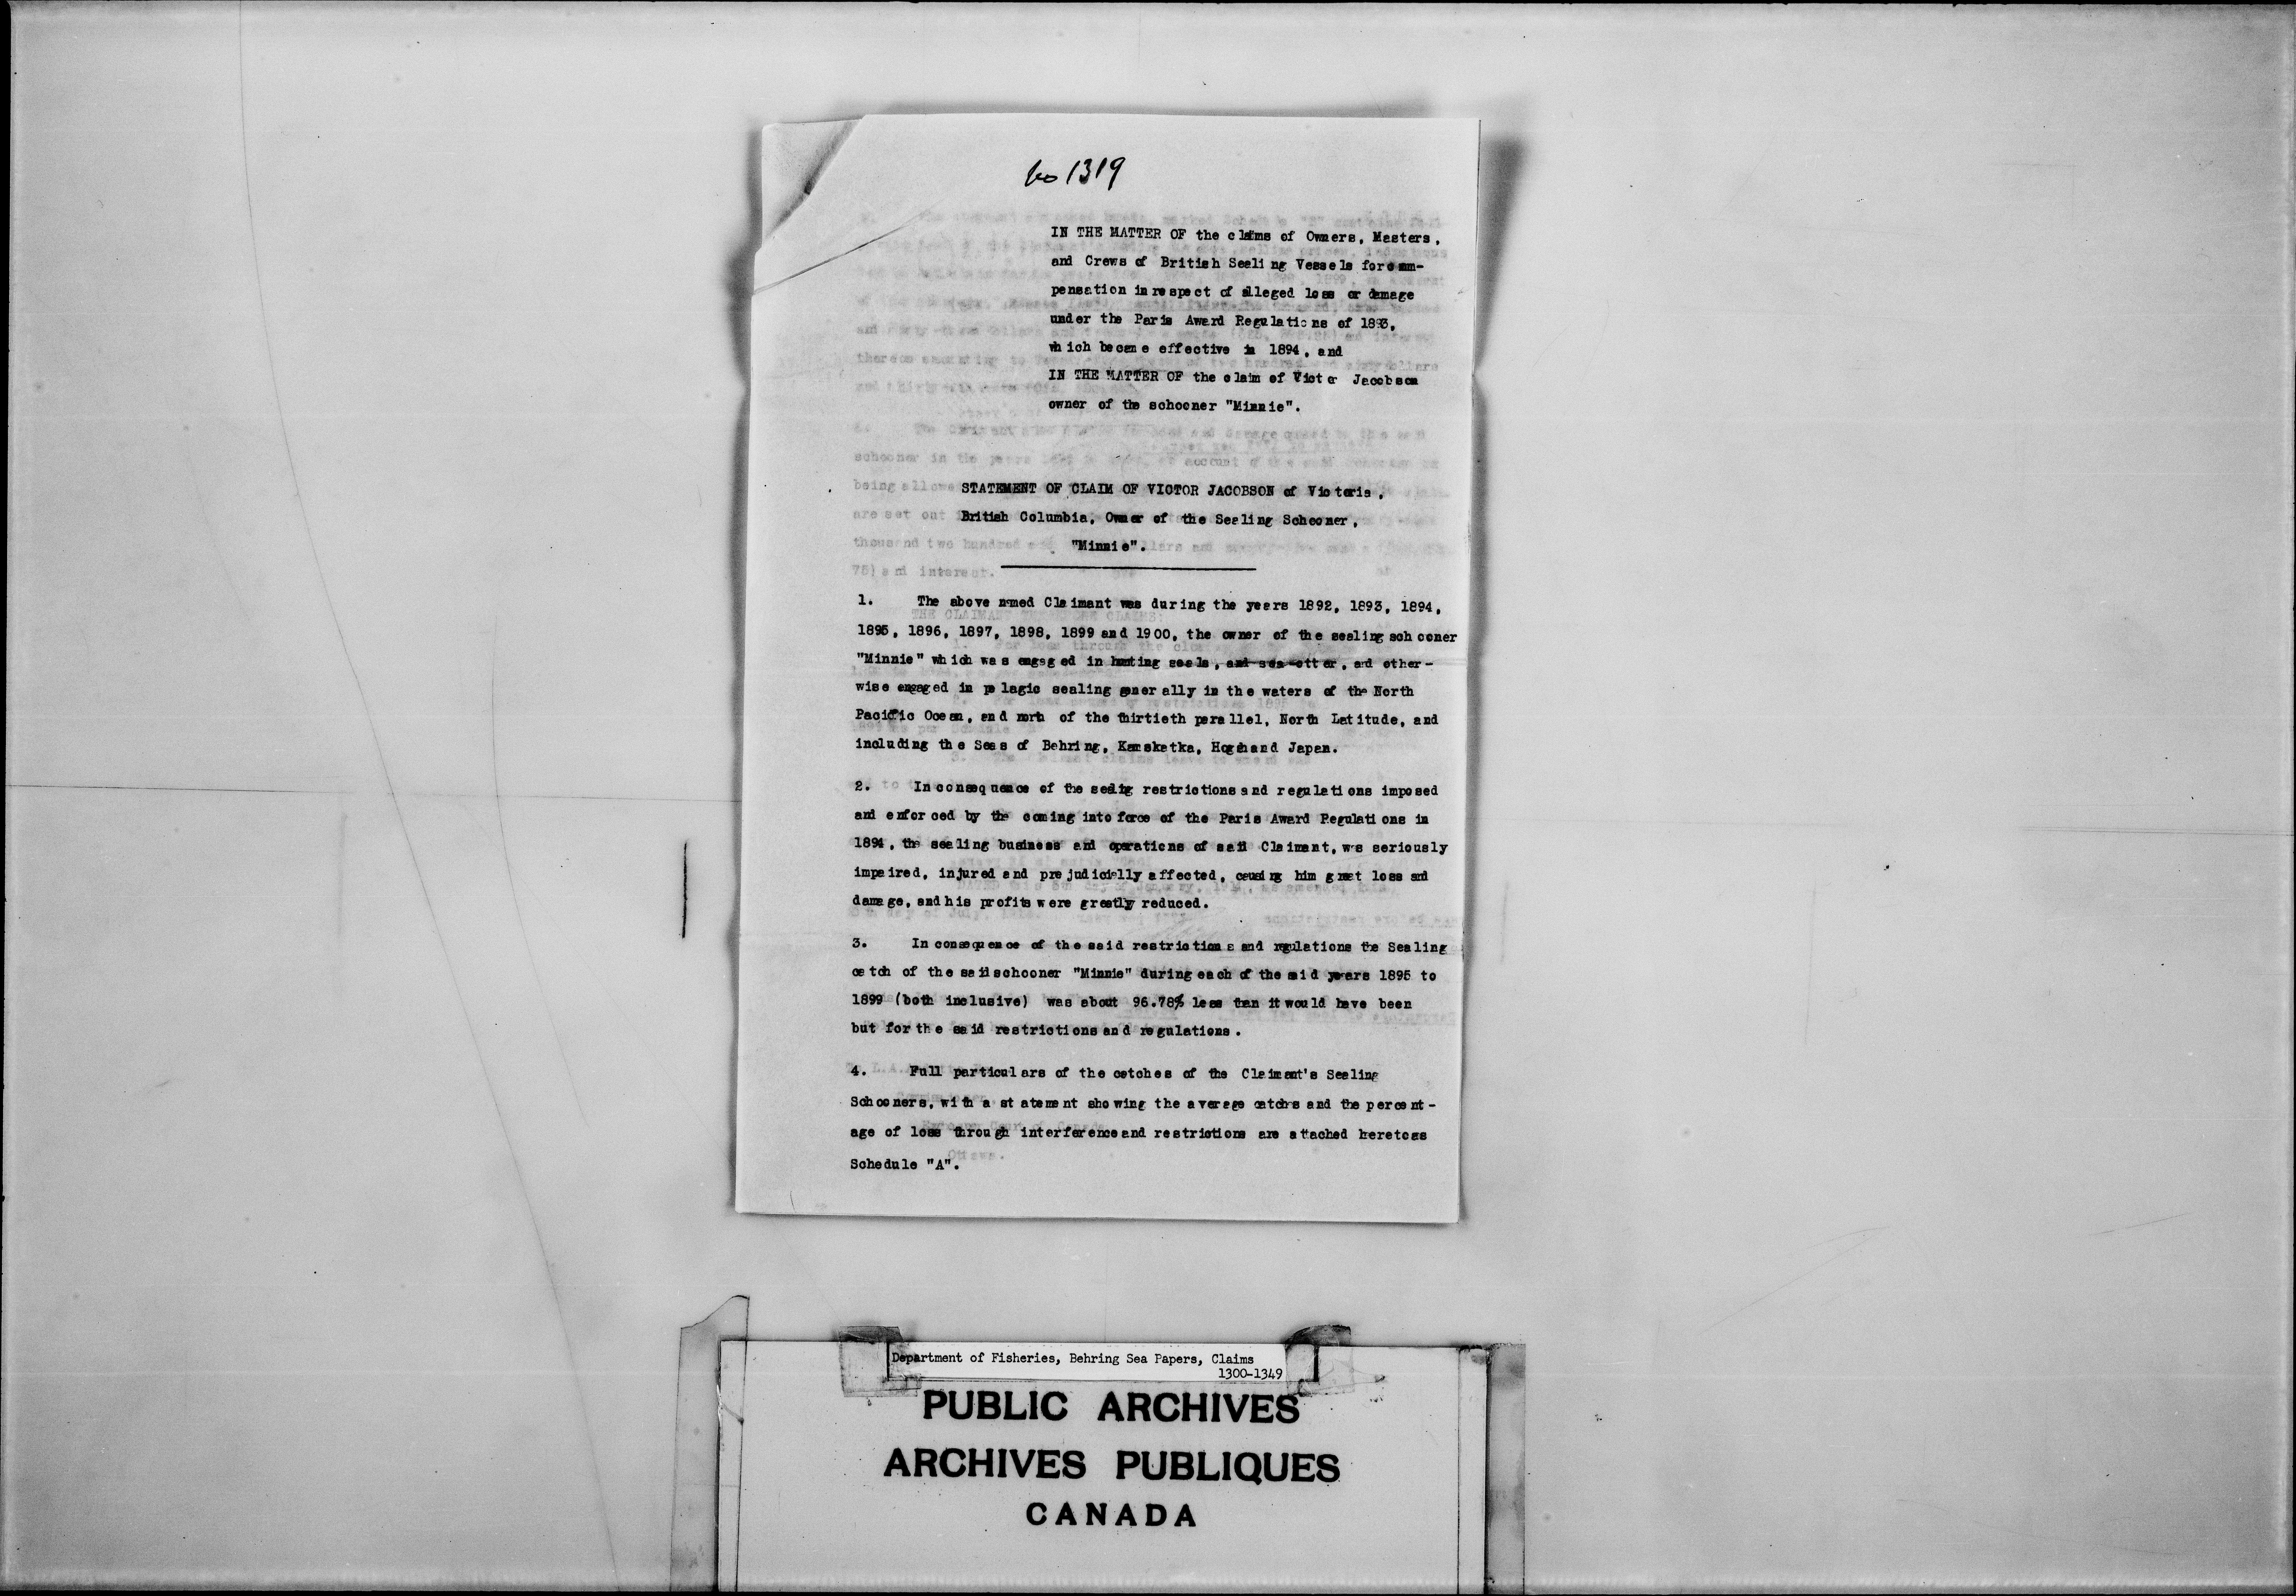 No 1319
IN THE MATTER OF the claims of Owners, Masters,
and Crews of British Sealing Vessels for com-
pensation in respect of alleged loss or damage
under the Paris Award Regulations of 1893,
which became effective in 1894, and
IN THE MATTER OF the claim of Victor Jacobson
owner of the schooner "Minnie".
STATEMENT OF CLAIM OF VICTOR JACOBSON of Victoria,
British Columbia, Owner of the Sealing Schooner,
"Minnie".
1. The above named Claimant was during the years 1892, 1893, 1894,
1895, 1896, 1897, 1898, 1899 and 1900, the owner of the sealing schooner
"Minnie" which was engaged in hunting seals, and sea otter, and other-
wise engaged in pelagic sealing generally in the waters of the North
Pacific Ocean, and north of the thirtieth parallel, North Latitude, and
including the Seas of Behring, Kamskatka, and Japan.
2. In consequence of the sealing restrictions and regulations imposed
and enforced by the coming into force of the Paris Award Regulations in
1894, the sealing business and operations of said Claimant, was seriously
impaired, injured and prejudicially affected, causing him great loss and
damage, and his profits were greatly reduced.
3. In consequence of the said restrictions and regulations the Sealing
catch of the said schooner "Minnie" during each of the said years 1895 to
1899 (both inclusive) was about 96.78% less than it would have been
but for the said restrictions and regulations.
4. Full particulars of the catches of the Claimant's Sealing
Schooners, with a statement showing the average catches and the percent-
age of loss through interference and restrictions are attached hereto as
Schedule "A".
Department of Fisheries, Behring Sea Papers, Claims
1300-1349
PUBLIC ARCHIVES
ARCHIVES PUBLIQUES
CANADA